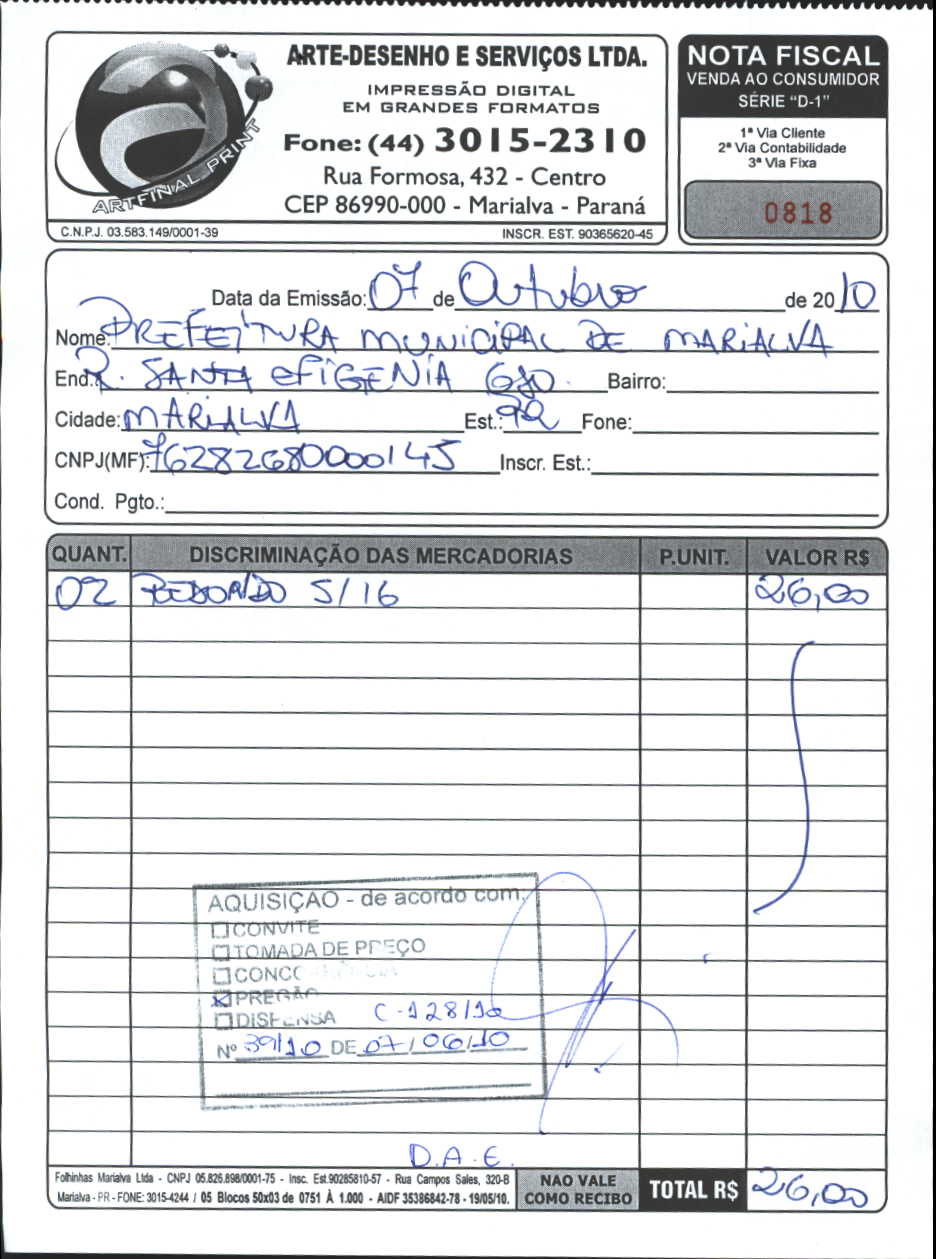 ARTFINAL PRINT
ARTE-DESENHO E SERVIÇOS LTDA.
IMPRESSÃO DIGITAL
EM GRANDES FORMATOS
Fone: (44) 3015-2310
Rua Formosa, 432 - Centro
CEP 86990-000 - Marialva - Paraná
C.N.P.J. 03.583.149/0001-39 INSCR. EST. 90365620-45
NOTA FISCAL
VENDA AO CONSUMIDOR
SÉRIE "D-1"
1ª Via Cliente
2ª Via Contabilidade
3ª Via Fixa
0818
Data da Emissão: 07 de Outubro de 2010
Nome: PREFEITURA MUNICIPAL DE MARIALVA
End.: R. SANTA EFIGENIA 680. Bairro:
Cidade: MARIALVA Est.: PR Fone:
CNPJ(MF): 76282680000145 Inscr. Est.:
Cond. Pgto.:
QUANT. DISCRIMINAÇÃO DAS MERCADORIAS P.UNIT. VALOR R$
02 5/16 26,00
AQUISIÇÃO - de acordo com:
CONVITE
TOMADA DE PREÇO
PREGÃO
DISPENSA C-128/10
Nº 39/10 DE 07/06/10
D.A.E.
Folhinhas Marialva Ltda - CNPJ 05.826.898/0001-75 - Insc. Est.90285810-57 - Rua Campos Sales, 320-B
Marialva - PR - FONE: 3015-4244 / 05 Blocos 50x03 de 0751 À 1.000 - AIDF 35386842-78 - 19/05/10.
NAO VALE
COMO RECIBO
TOTAL R$ 26,00